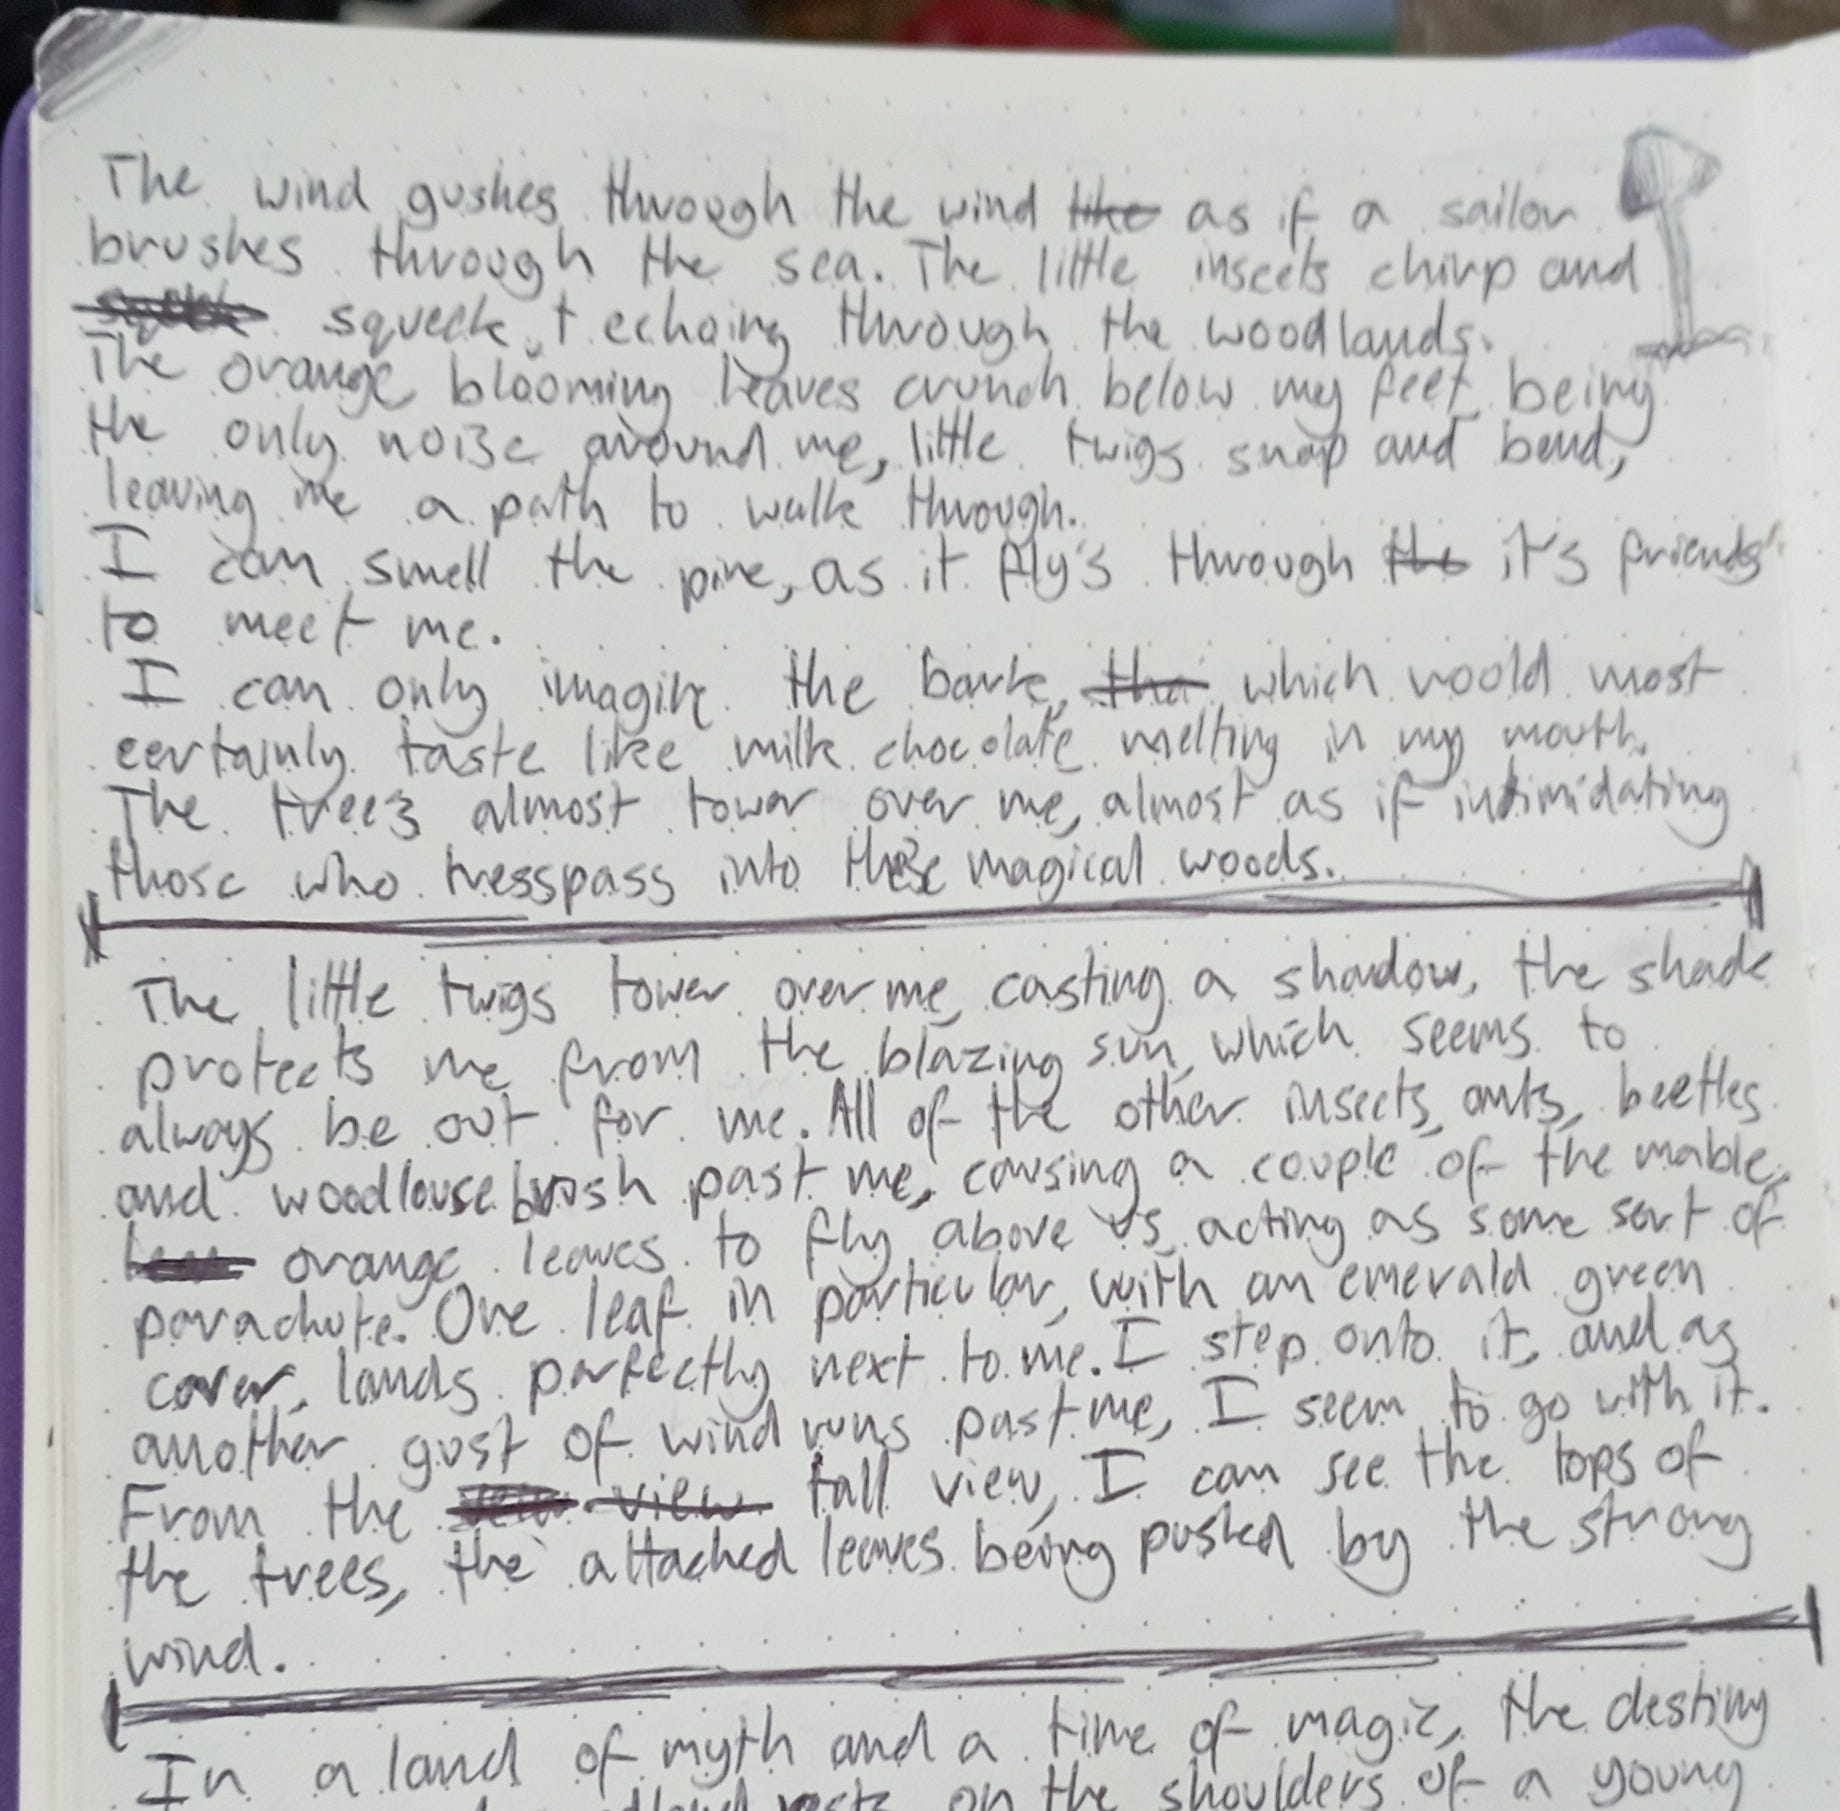 The wind gushes through the wind like as if a sailor
brushes through the sea. The little insects chirp and
squeek, echoing through the woodlands.
The orange blooming leaves crunch below my feet, being
the only noise around me, little twigs snap and bend,
leaving me a path to walk through.
I can smell the pine, as it fly's through the it's friends
to meet me.
I can only imagine the bark, tha which woold most
certainly taste like milk chocolate melting in my mouth.
The trees almost tower over me, almost as if intimidating
those who tresspass into these magical woods.
The little twigs tower over me, casting a shadow, the shade
protects me from the blazing sun, which seems to
always be out for me. All of the other insects, ants, beetles
and woodlouse brush past me, causing a couple of the mable,
orange leaves to fly above us, acting as some sort of
parachute. One leaf in particular, with an emerald green
cover, lands perfectly next to me. I step onto it, and as
another gust of wind runs past me, I seem to go with it.
From the view tall view, I can see the tops of
the trees, the attached leaves being pushed by the strong
wind.
In a land of myth and a time of magic, the destiny
on the shoulders of a young